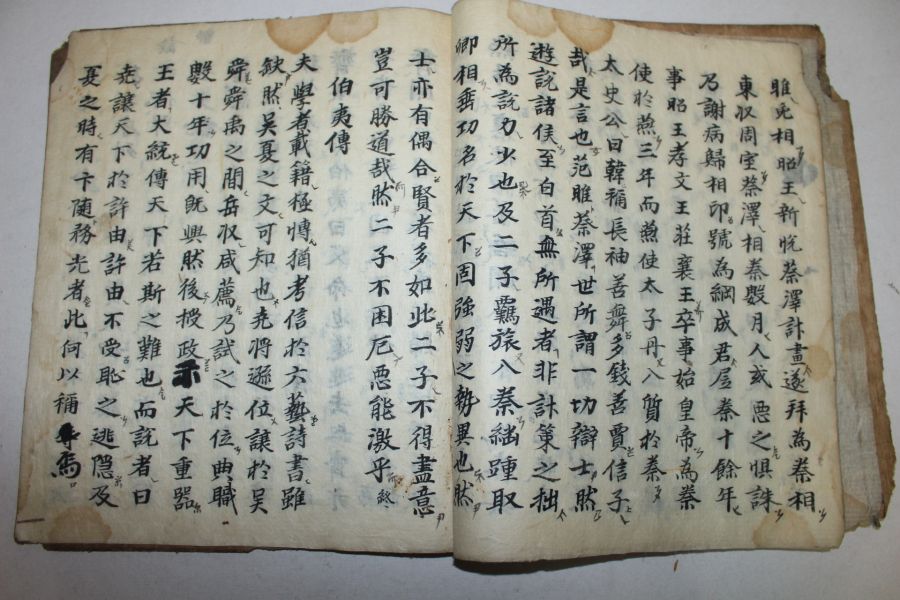 睢免相昭王新悅蔡澤計畫遂拜為秦相
東収周室蔡澤相秦數月人或惡之惧誅
乃謝病歸相印號為綱成君居秦十餘年
事昭王孝文王莊襄王卒事始皇帝為秦
使於燕三年而燕使太子丹入質於秦
太史公曰韓稱長袖善舞多錢善賈信
哉是言也范睢蔡澤世所謂一切辯士然
遊說諸侯至白首無所遇者非計策之拙
所為說力少也及二子羈旅入秦継踵取
卿相垂功名於天下固強弱之勢異也然
士亦有偶合賢者多如此二子不得盡意
豈可勝道哉然二子不困厄惡能激乎 終
伯夷傳
夫學者載籍極博猶考信於六藝詩書雖
缺然吴夏之文可知也尭將遜位讓於吴
舜舜禹之間岳収咸薦乃試之於位典職
數十年功用旣興然後授政示天下重器
王者大統傳天下若斯之難也而說者曰
尭讓天下於許由許由不受恥之逃隱及
夏之時有卞随務光者此何以稱焉